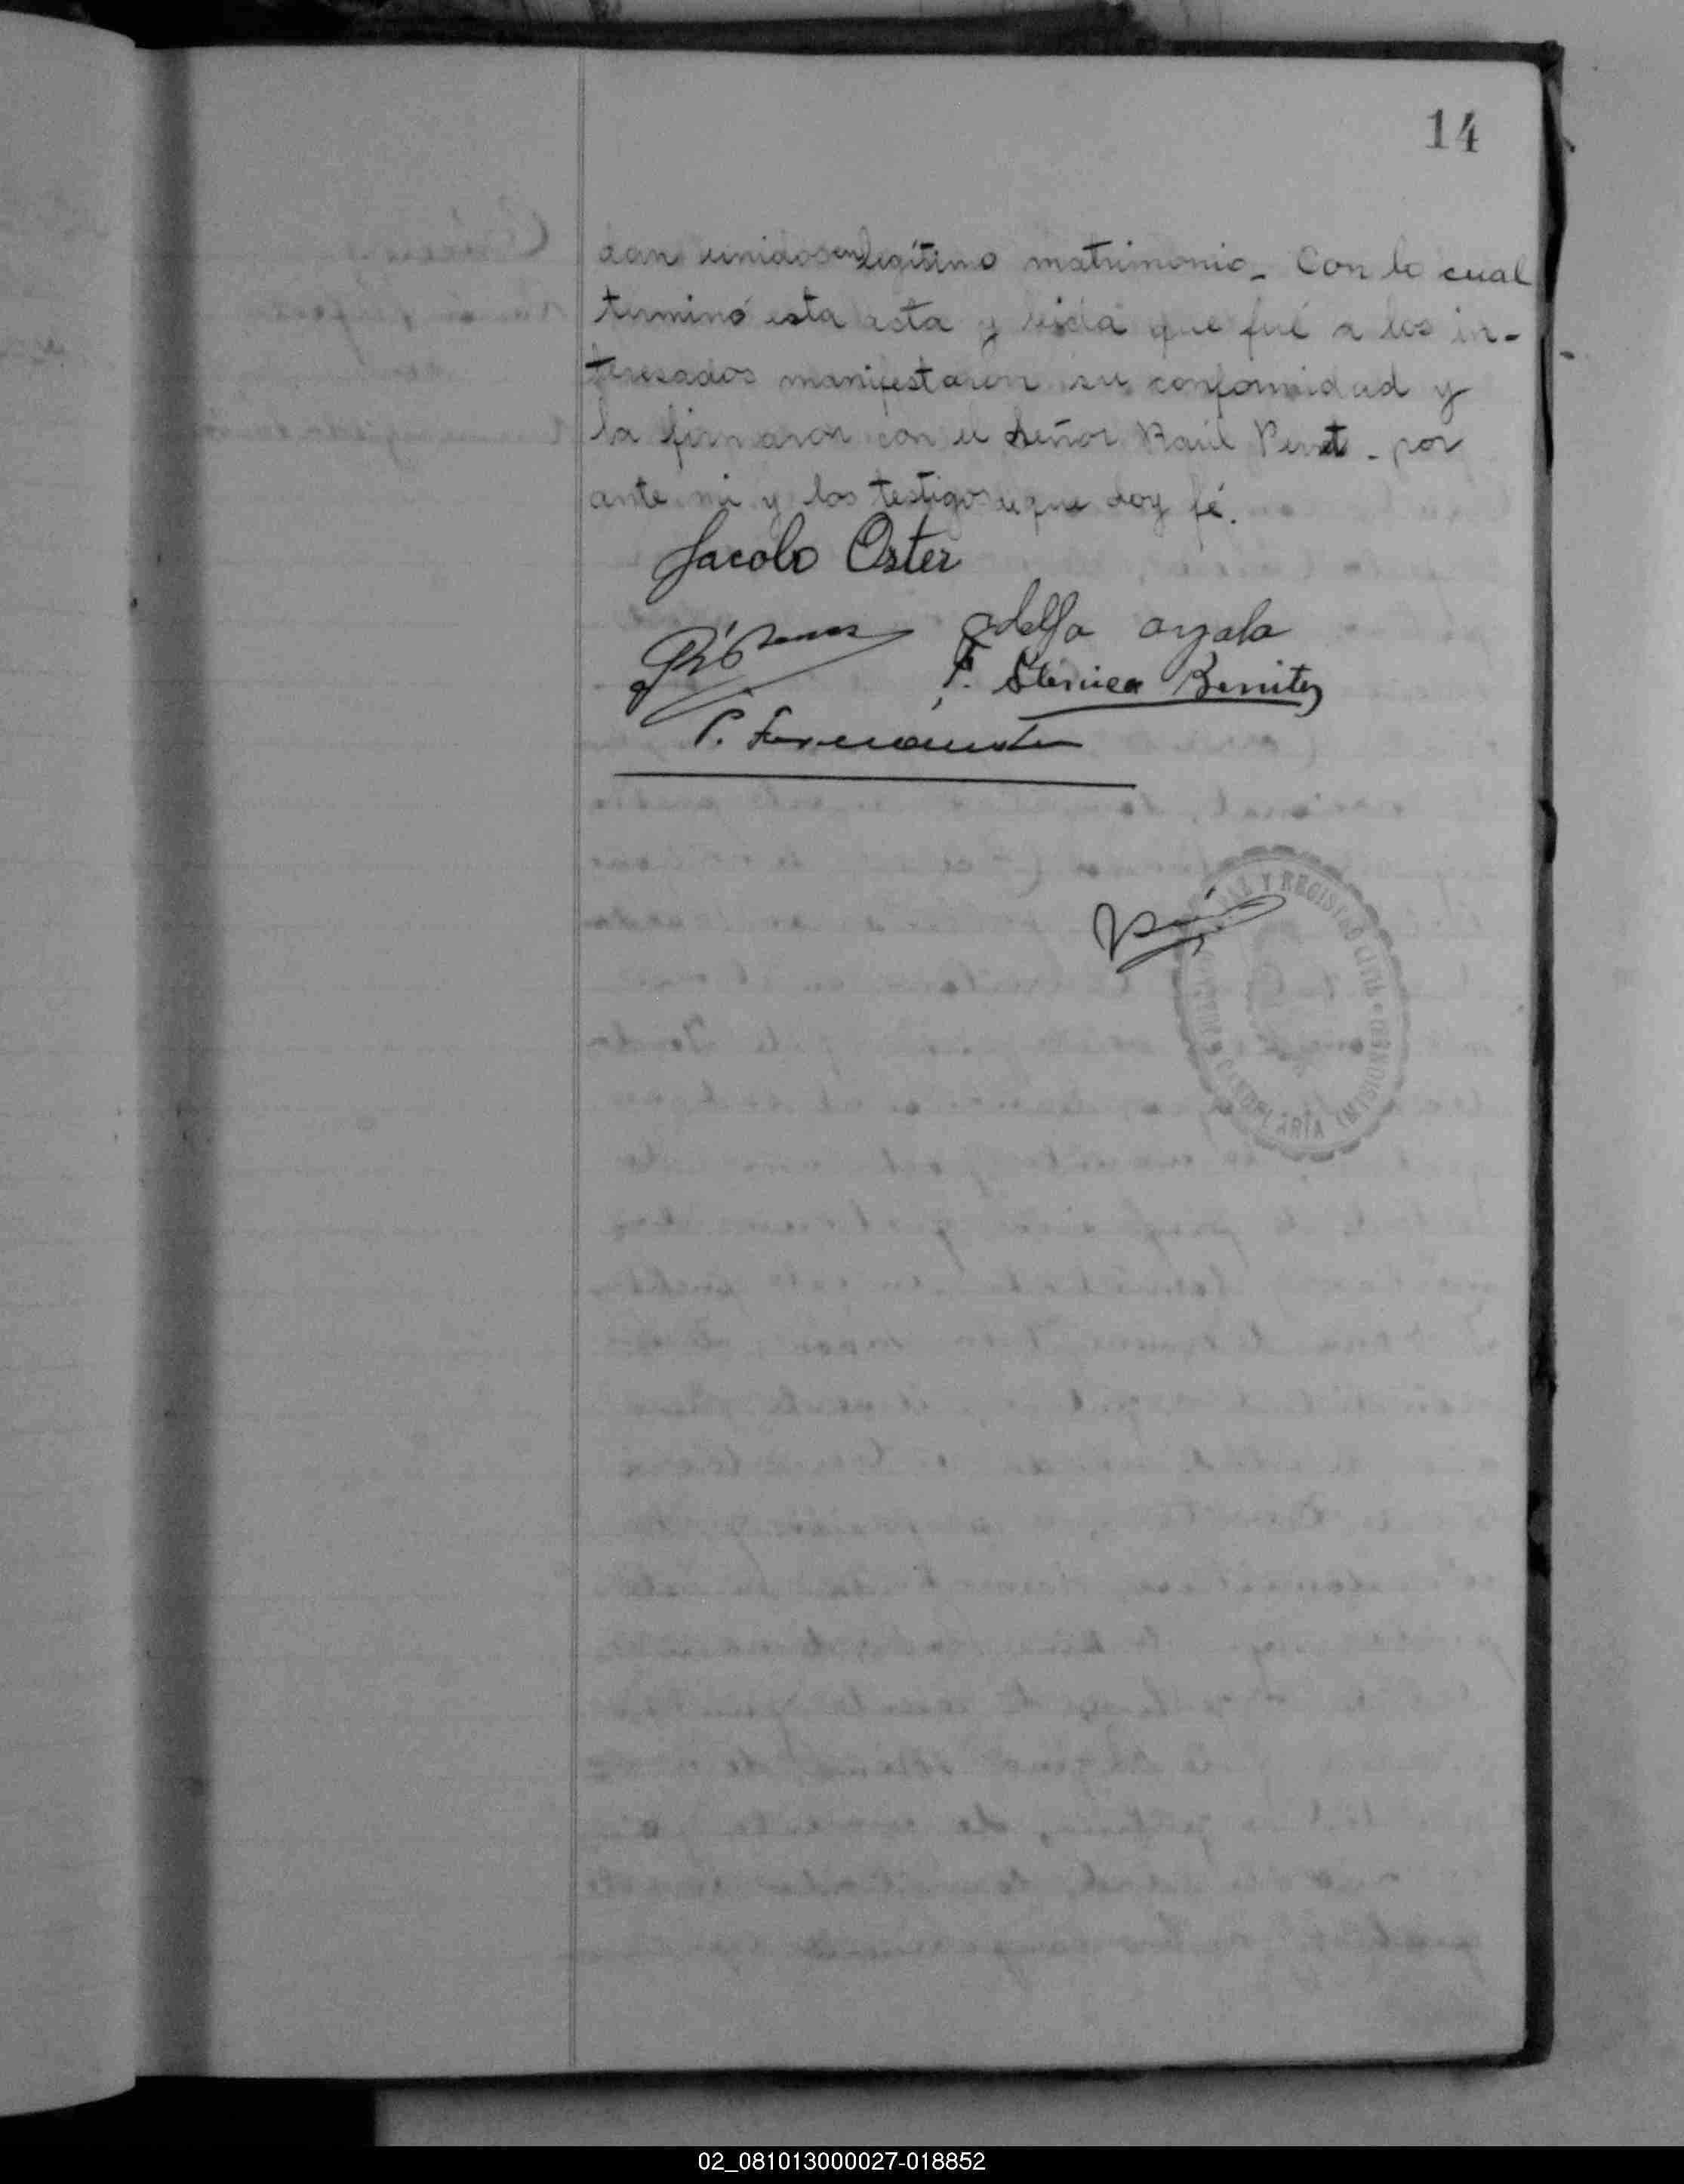 14
dan unidos en legítimo matrimonio_ Con lo cual
terminó esta acta y leida que fué a los in-
teresados manifestaron su conformidad y
la firmaron con el Señor Raúl Peret - por
ante mi y los testigos de que doy fé.
Jacobo Oster
Adelfa ayala
F. Benitez
P.
Y REGISTRO CIVIL
CANDELARIA (MISIONES)
02_081013000027-018852